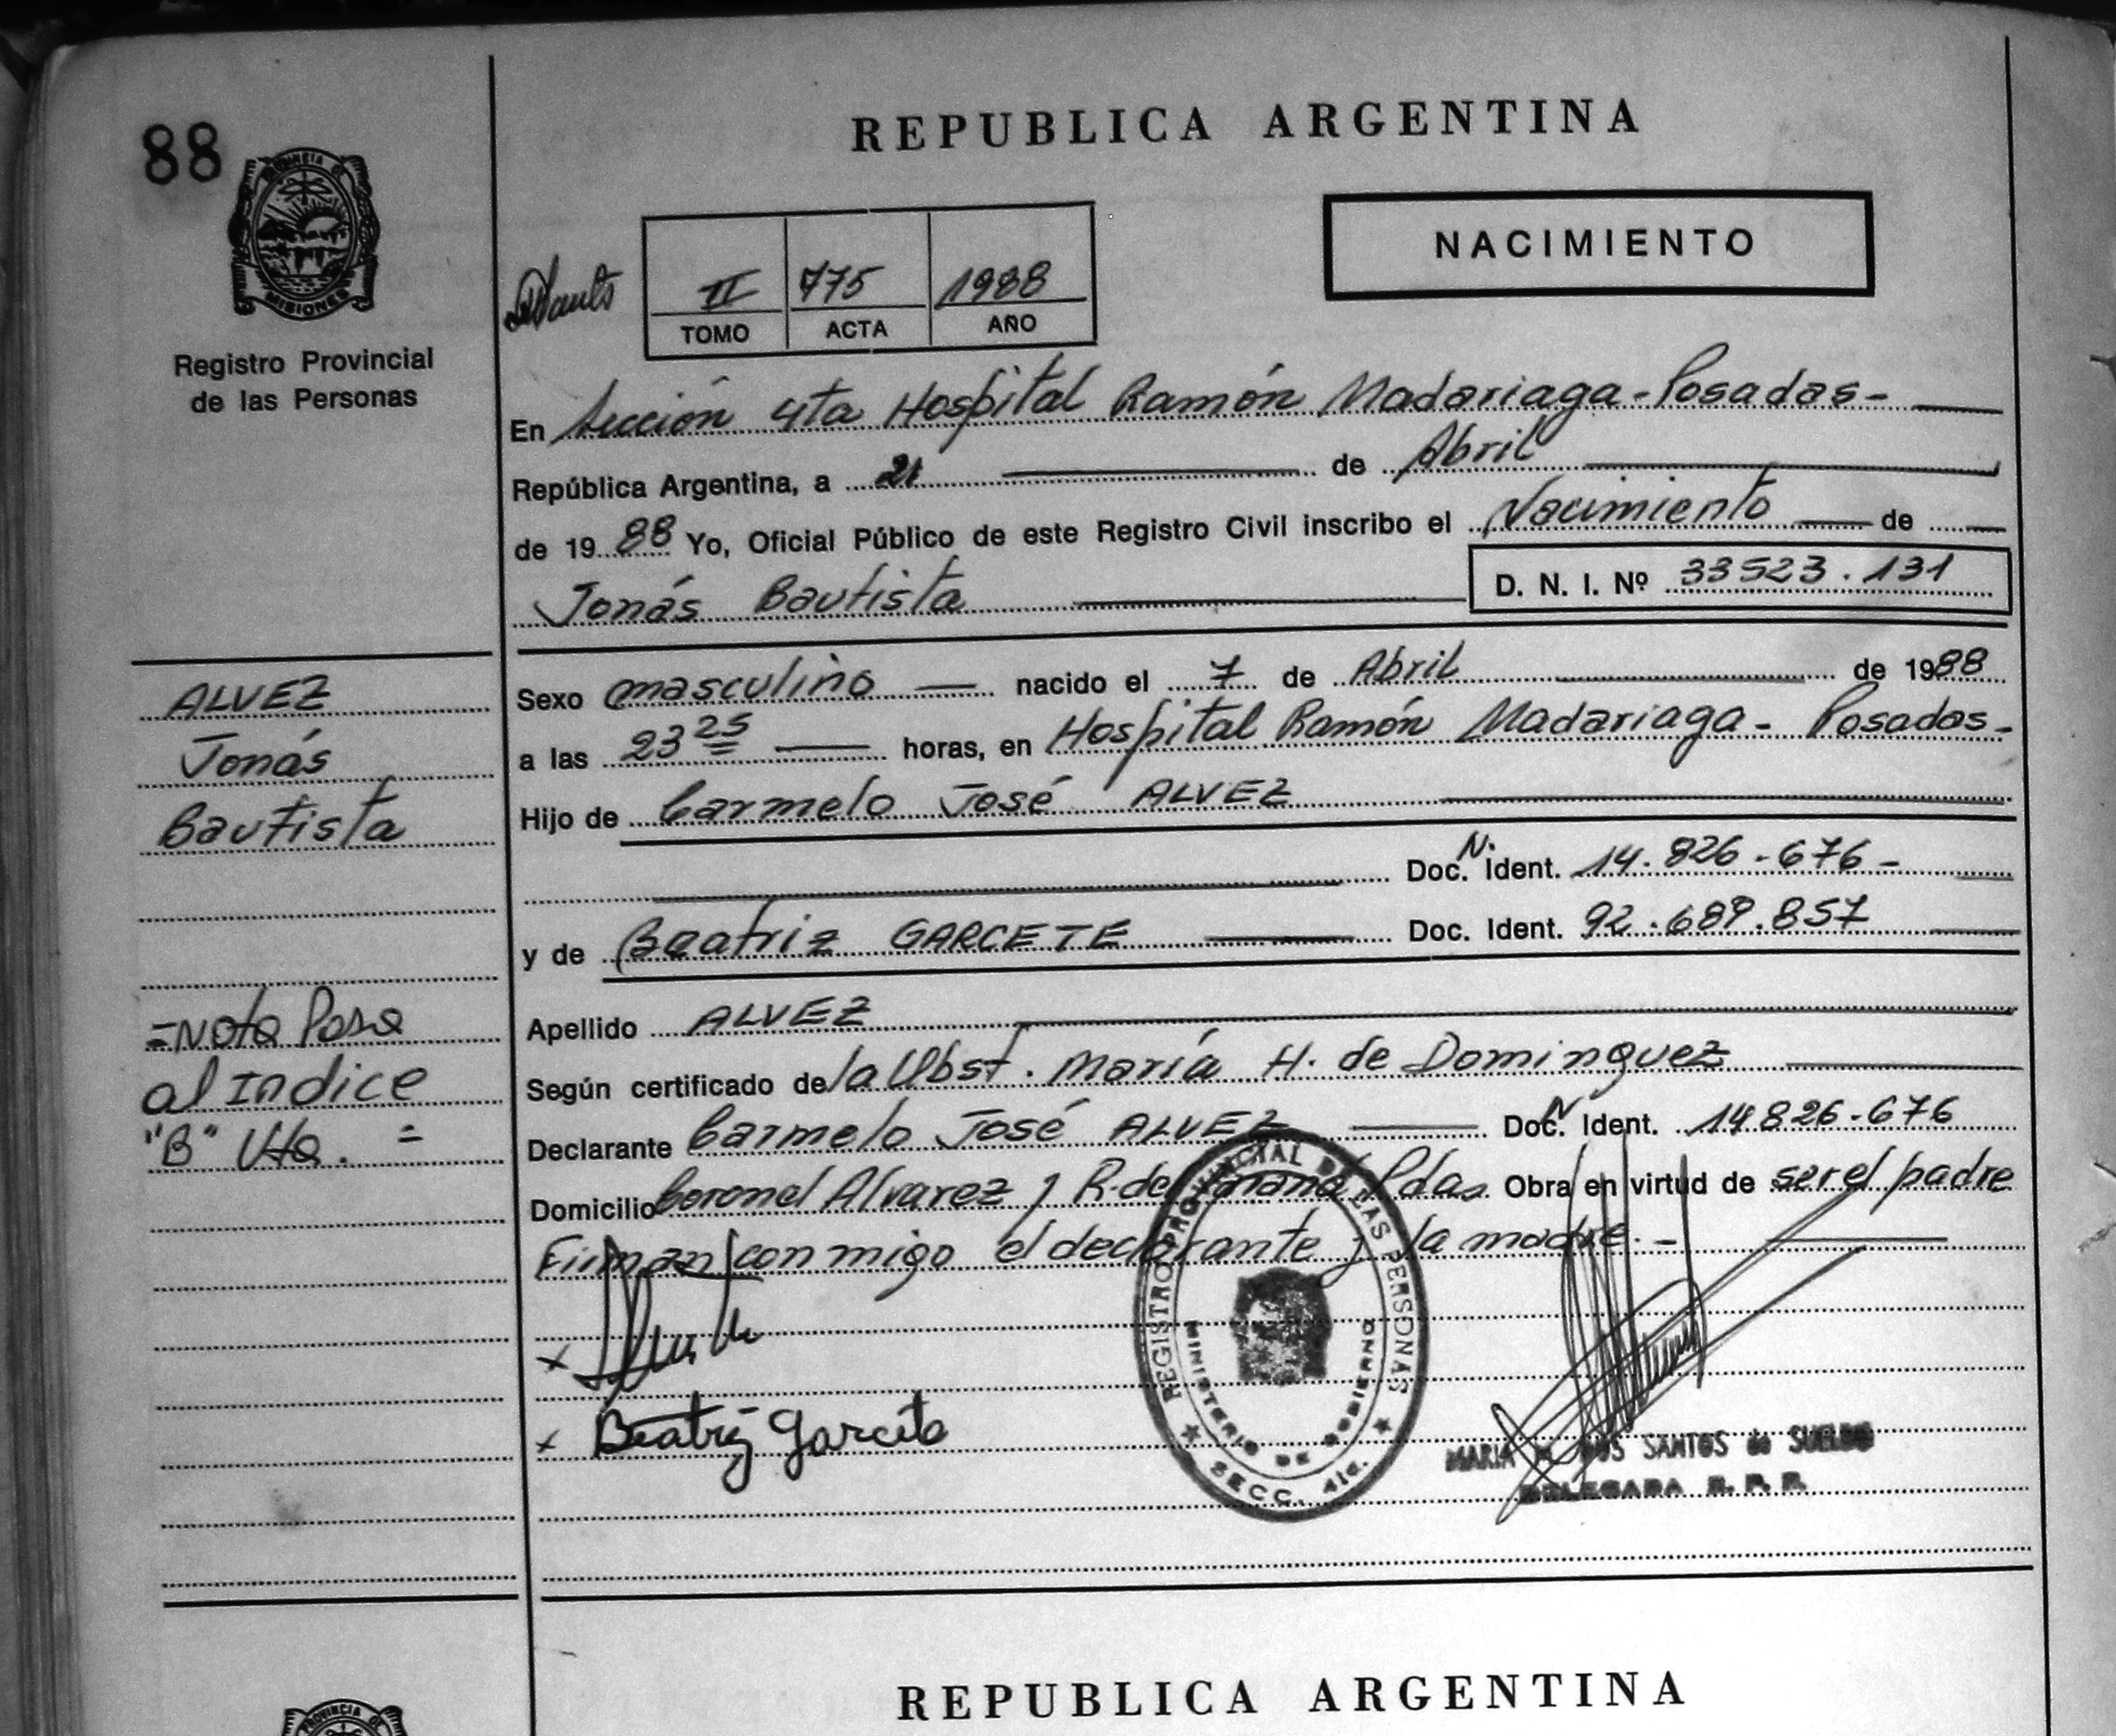 88
PROVINCIA DE
MISIONES
Registro Provincial
de las Personas
REPUBLICA ARGENTINA
NACIMIENTO
II 775 1988
TOMO ACTA AÑO
En Sección 4ta Hospital Ramón Madariaga - Posadas -
República Argentina, a 21 de Abril
de 1988 Yo, Oficial Público de este Registro Civil inscribo el Nacimiento de
Jonás Bautista D. N. I. Nº 33523.131
Sexo masculino nacido el 7 de Abril de 1988
a las 23 25 horas, en Hospital Ramón Madariaga - Posadas -
Hijo de Carmelo José ALVEZ
Doc. N. Ident. 14.826.676 -
y de Beatriz GARCETE Doc. Ident. 92.689.857
Apellido ALVEZ
Según certificado de la Obst. María H. de Dominguez
Declarante Carmelo José ALVEZ Doc. N. Ident. 14826.676
Domicilio Coronel Alvarez y R. del Paraná Pdas Obra en virtud de ser el padre
Firman con migo el declarante y la madre. -
x
x Beatriz Garcete
ALVEZ
Jonás
Bautista
= Nota Pasa
al Indice
"B" Vta. =
REGISTRO PROVINCIAL DE LAS PERSONAS
MINISTERIO DE GOBIERNO
SECC. 4ta.
MARIA DOS SANTOS de SUELDO
DELEGADA R. P. P.
REPUBLICA ARGENTINA
PROVINCIA DE